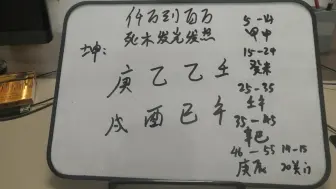 什百到百万
死木发光发热
坤:
庚 乙 乙 壬
戌 酉 巳 午
5-14
甲申
15-24
癸未
25-35
壬午
35-45
辛巳
46-55
庚辰